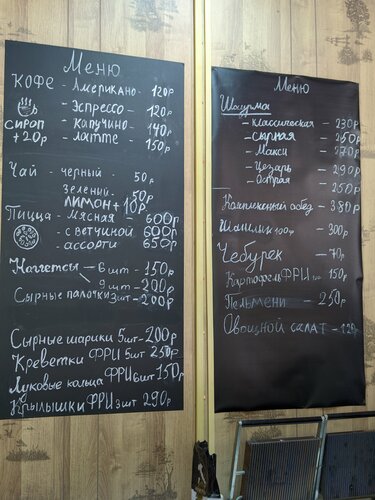 Меню
КОФЕ - Американо - 120р
- Эспрессо - 120р
СИРОП - капучино - 140р
+20р - латте - 150р
ЧАЙ - черный - 50р
зеленый - 50р
ЛИМОН + 10р
Пицца - Мясная - 600р
- с ветчиной 600р
- ассорти 650р
Наггетсы - 6 шт - 150р
9 шт - 200р
Сырные палочки 3шт - 200р
Сырные шарики 5шт - 200р
Креветки ФРИ 5шт 250р
Луковые кольца ФРИ 6шт 150р
Крылышки ФРИ 3шт 290р
Меню
Шаурма
- Классическая - 230р
- Сырная - 250р
- Макси - 270р
- Цезарь - 290р
- Острая - 250р
Комплексный обед - 380р
Шашлык 100г - 300р
Чебурек - 70р
Картофель ФРИ 150р
Пельмени - 250р
Овощной САЛАТ - 120р